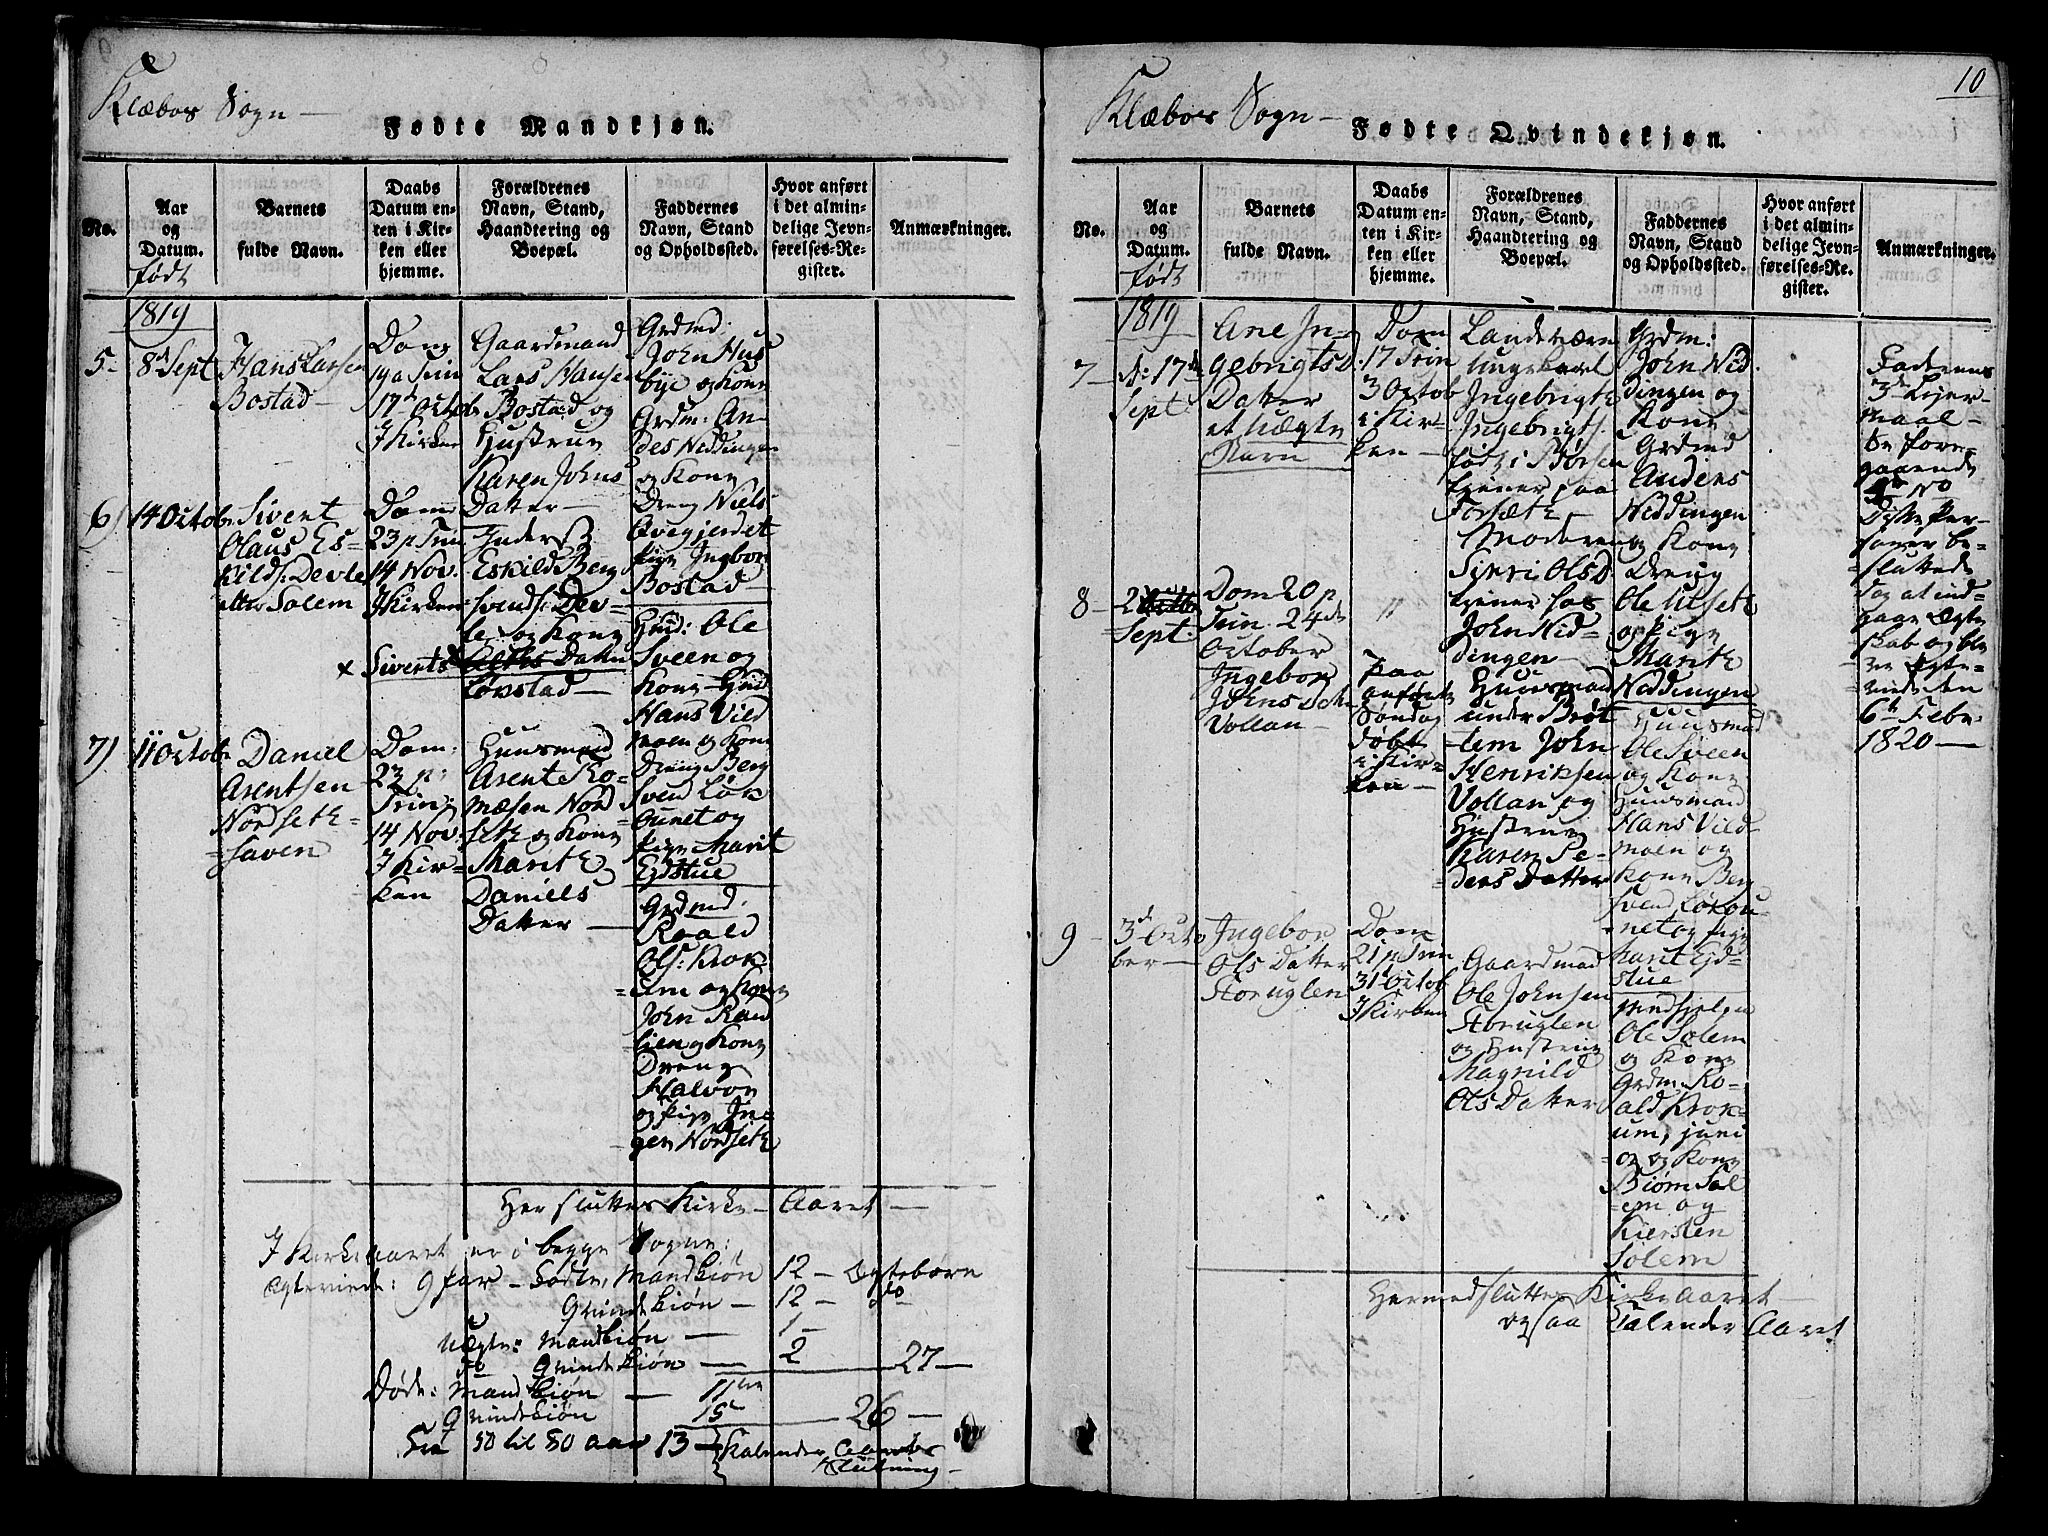 Klæboe Sogn
Fødte Mandkjøn.
No.
Aar
og
Datum.
født
Barnets
fulde Navn.
Daabs
Datum en-
ten i Kir-
ken eller
hjemme.
Forældrenes
Navn, Stand,
Haandtering og
Boepæl.
Faddernes
Navn, Stand
og Opholdssted.
Hvor anført
i det almin-
delige Jevn-
førelses-Re-
gister.
Anmærkninger.
1819
5
8de Sept
Hans Larsen
Bostad
Dom
19 a Trin
17de Octob
I Kirken
Gaardmand
Lars Hansen
Bostad og
Hustrue
Karen Johns
Datter
Grdmd:
John Hus
bye og Kone
Grdm: An-
des Neddingen
og Kone
Dreng Niels
Qvegjerdet
Pige Ingebor
Bostad
6)
14 Octob
Sivert
Olaus Es-
kilds: Devle
Solem
Dom
23 p Trin
14 Nov.
I Kirken
Eskild Berg
svends: Dev-
le og Kone
x Siverts
Datter
Løkstad
Hmd: Ole
Sveen og
Kone Hmd
Hans Vild
moen og Kone
Dreng Berg
Sven Løk
ounet og
Pige Marit
Ejdstue
7)
11 Octob
Daniel
Arentsen
Nordseth
saven
Dom:
23 p:
Trin:
14 Nov:
I Kir-
ken
Huusmand
Arent To-
mæsen Nord
seth og Kone
Marith
Daniels
Datter
Grdmd:
Roald
Ols: Krok-
um og Kone
John Ran
lien og Kone
Dreng
Halvor
og Pige In-
geri Nordseth
Her slutter Kirke-Aaret
I Kirkeaaret er i begge Sogne:
Ægteviede: 9 par - Fødte, Mandkiøn 12 - Ægtebørn
Qvindekiøn - 12 - do
Uægte: Mandkiøn - 1 -
do Qvindekiøn - 2 27 -
Døde: Mandkiøn - 11
Qvindekiøn 15 - 26 -
Fra 50 til 80 aar 13 - Kalender Aarets
Slutning -
10
Klæboe Sogn
Fødte Qvindekjøn.
No.
Aar
og
Datum.
født
Barnets
fulde Navn.
Daabs
Datum en-
ten i Kir-
ken eller
hjemme.
Forældrenes
Navn, Stand,
Haandtering og
Boepæl.
Faddernes
Navn, Stand
og Opholdssted.
Hvor anført
i det almin-
delige Jevn-
førelses-Re-
gister.
Anmærkninger.
1819
7
d: 17de
Sept:
Ane In-
gebrigtsd.
Datter
et uægte
Barn
Dom
17 Trin
3 Octob
i Kir-
ken
Landeværn
Ungekarl
Ingebrigt
Ingebrigts.
født i Børsen
tjener paa
Forsæth
Moderen
Siri Olsd
tjener hos
John Nid-
dingen
Grdm:
John Nid
dingen og
Kone
Grdmd
Anders
Niddingen
og Kone
Dreng
Ole Ulseth
og Pige
Marith
Neddingen
Faderens
3de Lejer-
maal
De fore-
gaaende
No
Disse Per-
soner be-
sluttede
dog at ind-
gaae Ægte
skab og ble
ve Ægte-
viede den
6te Febr:
1820
8
Sept:
Dom 20 p
Trin. 24de
October
Ingebor
Johns dtr
Vollan
"
paa
anførte
Søndag
døbt
i Kir-
ken
Huusmand
under Brøt
tem John
Henriksen
Vollan og
Hustrue
Karen Pe-
ders Datter
Huusmand
Ole Sveen
og Kone
Huusmand
Hans Vild
moen og
Kone Berg
svend Løkou-
net og Pige
Marit Ejd-
stue
9
3de Octo
ber
Ingebor
Ols Datter
Storuglen
Dom
21 p Trin
31 Octob
I Kirken
Gaardmand
Ole Johnsen
Storuglen
og Hustrue
Magnild
Ols Datter
Medhjelper
Ole Solem
og Kone
Grdm. Ro-
ald Krok-
um, juni-
or og Kone
Biørn Sol
em og
Kiersten
Solem
Hermed slutter Kirke Aaret
ogsaa Calender Aaret